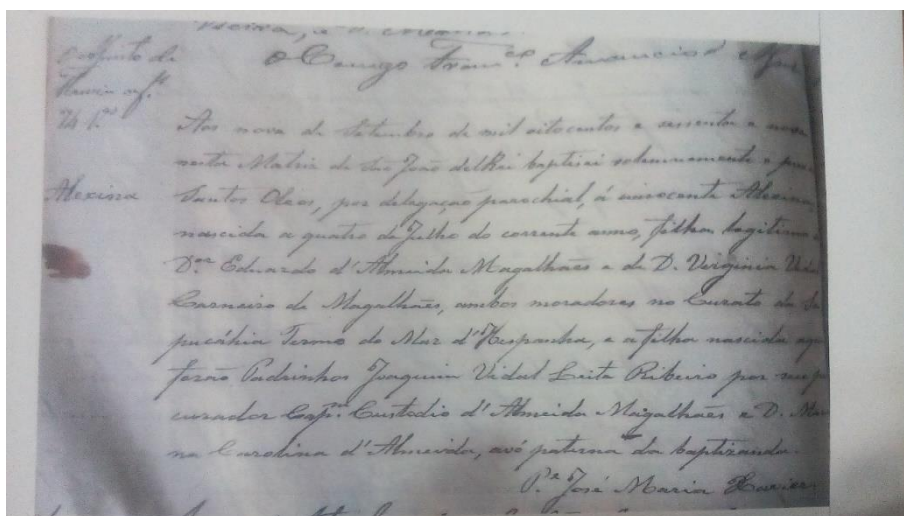 O Conego Franc.º Amancio d'
Alexina
Aos nove de Setembro de mil oitocentos e sessenta e nove
nesta Matriz de São João delRei baptisei solemnemente e pus
Santos Oleos, por delegação parochial, á innocente Alexina,
nascida a quatro de Julho do corrente anno, filha legitima
D.or Eduardo d'Almeida Magalhães e de D. Virginia Vidal
Carneiro de Magalhães, ambos moradores no Curato da
pucáhia Termo do Mar d'Hespanha, e a filha nascida aqui
forão Padrinhos Joaquim Vidal Leite Ribeiro por seu
curador Cap.m Custodio d'Almeida Magalhães e D.
na Carolina d'Almeida, avó paterna da baptizanda.
P.e José Maria Xavier